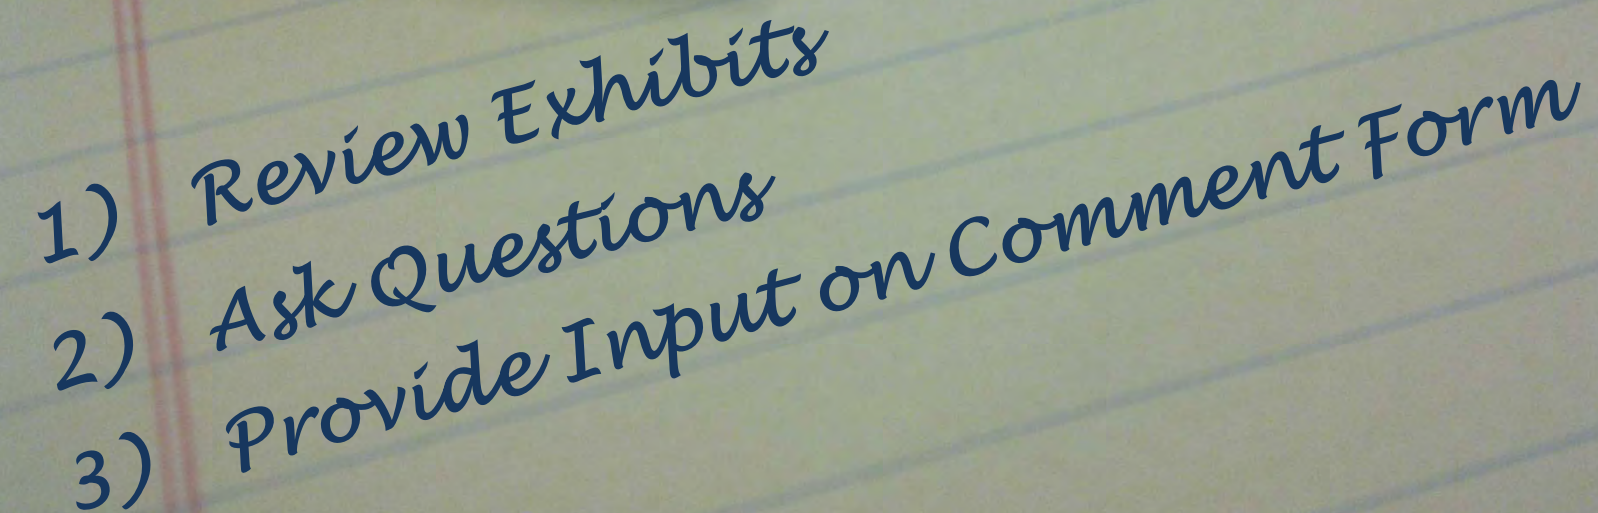 1) Review Exhibits
2) Ask Questions
3) Provide Input on Comment Form